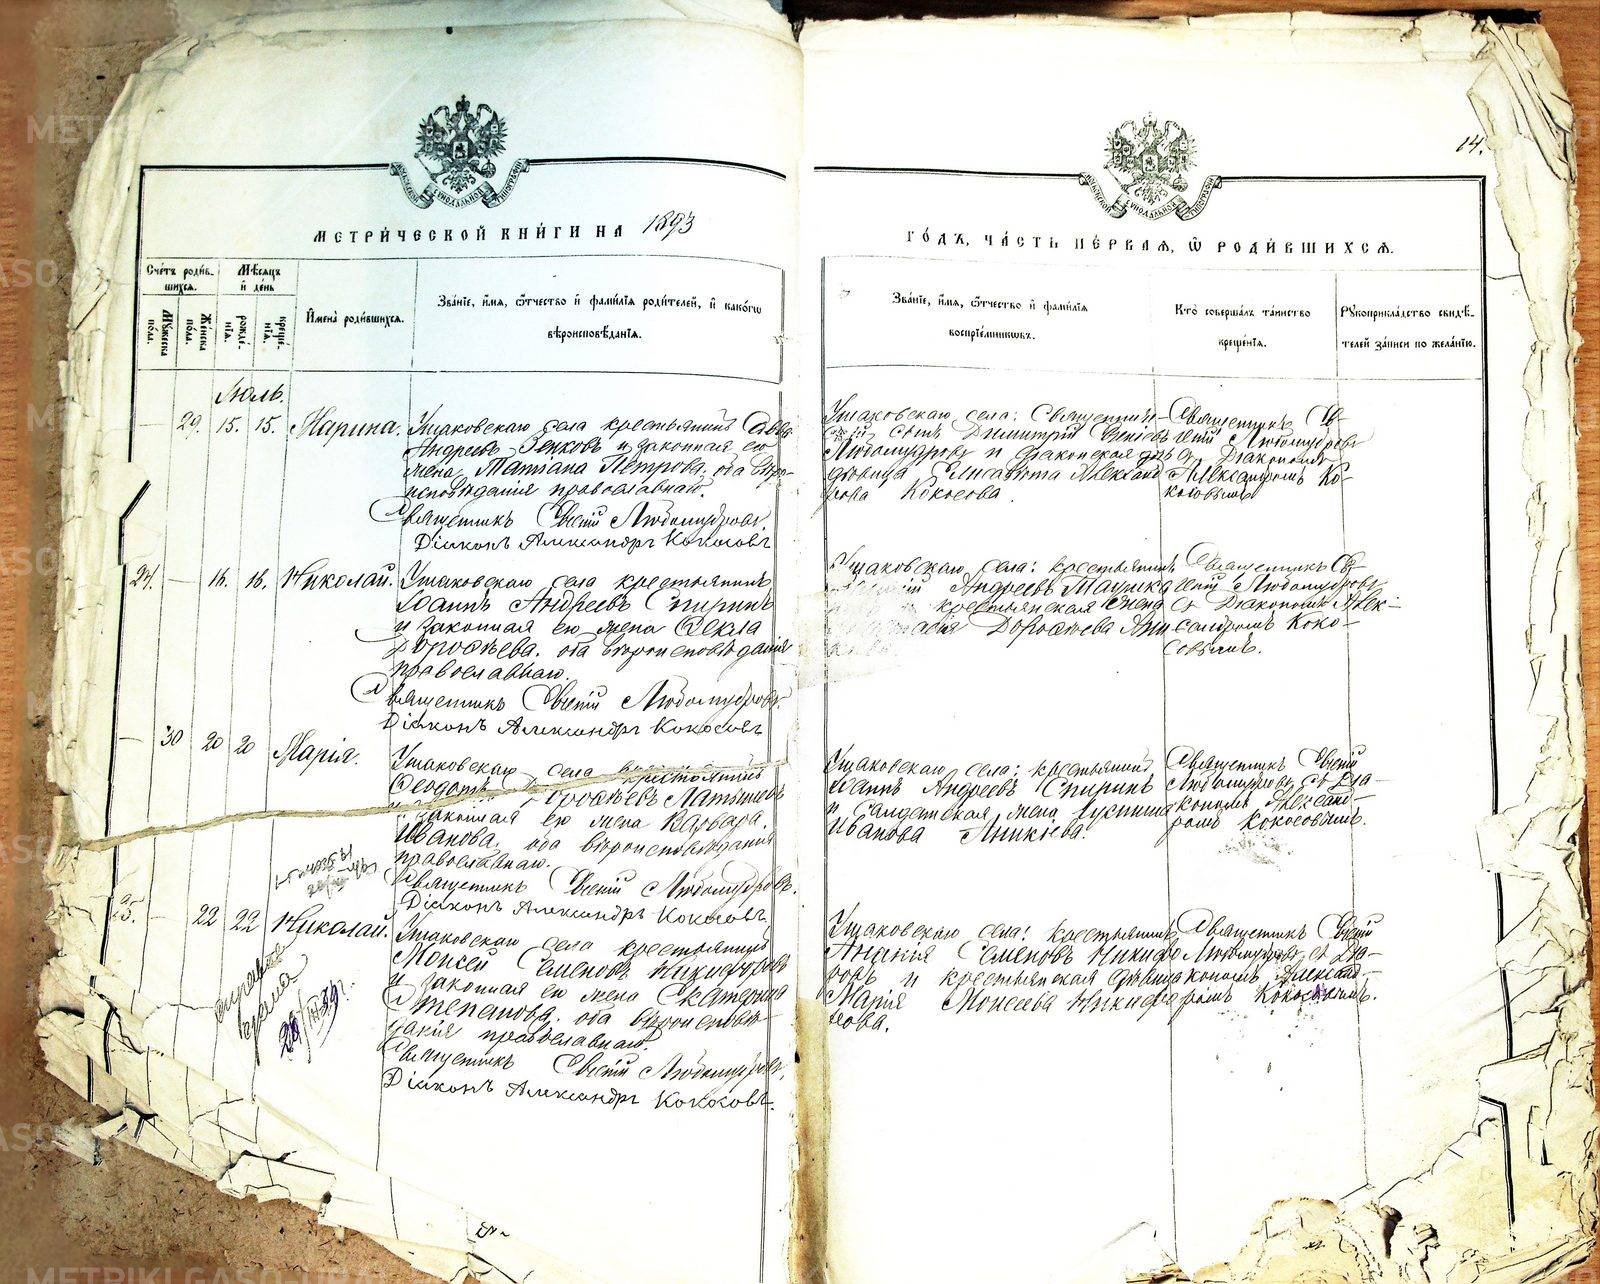 14.
МЕТРИ́ЧЕСКОЙ КНИ́ГИ НА 1893
ГО́ДЪ, ЧА́СТЬ ПЕ́РВАЯ, Ѿ РОДИ́ВШИХСѦ.
Сче́тъ роди́в-
шихсѧ.
Мꙋ́жеска по́ла.
Же́нска по́ла.
Мѣ́сѧцъ
и҆ де́нь
рожде́-
нїѧ.
креще́-
нїѧ.
И҆мена̀ роди́вшихсѧ.
Зва́нїе, и҆́мѧ, ѻ҆́тчество и҆ фами́лїѧ роди́телей, и҆ како́гѡ
вѣроисповѣ́данїѧ.
Зва́нїе, и҆́мѧ, ѻ҆́тчество и҆ фами́лїѧ
воспрїе́мникѡвъ.
Кто̀ соверша́лъ та́инство
креще́нїѧ.
Рꙋкоприкла́дство свидѣ́-
телей за́писи по жела́нїю.
Іюль.
29. 15. 15. Марина.
Ушаковскаго села крестьянинъ Савва
Андреевъ Зенковъ и законная его
жена Татіана Петрова, оба вѣро-
исповѣданія православнаго.
Священникъ Евгеній Любомудровъ.
Діаконъ Александръ Кокосовъ
Ушаковскаго села: Священни-
сынъ Димитрій Евгеніевъ
Любомудровъ и діаконская дочь
дѣвица Елисавета Александ
рова Кокосова.
Священникъ Ев-
геній Любомудровъ
съ Діакономъ
Александромъ Ко-
косовымъ
24. — 16. 16. Николай.
Ушаковскаго села крестьянинъ
Іоаннъ Андреевъ Спиринъ
и законная его жена Ѳекла
Дороѳеева, оба вѣроисповѣданія
православнаго.
Священникъ Евгеній Любомудровъ.
Діаконъ Александръ Кокосовъ
Ушаковскаго села: крестьянинъ
Андреевъ
крестьянская жена
Дороѳеева
Священникъ Ев-
геній Любомудровъ
съ Діакономъ Алек-
сандромъ Коко-
совымъ.
— 30 20 20 Марія.
Ушаковскаго села крестьянинъ
Ѳеодотъ Дороѳеевъ Латышевъ
и законная его жена Варвара
Иванова, оба вѣроисповѣданія
православнаго.
Священникъ Евгеній Любомудровъ.
Діаконъ Александръ Кокосовъ
Ушаковскаго села: крестьянинъ
Іоаннъ Андреевъ Спиринъ
и солдатская жена
Иванова Аникіева.
Священникъ Евгеній
Любомудровъ съ Діа-
кономъ Александ-
ромъ Кокосовымъ.
25. — 22 22 Николай.
справка
выдана
Ушаковскаго села крестьянинъ
Моисей Семеновъ Никифоровъ
и законная его жена Екатерина
Степанова, оба вѣроисповѣ-
данія православнаго.
Священникъ Евгеній Любомудровъ.
Діаконъ Александръ Кокосовъ.
Ушаковскаго села: крестьянинъ
Ананія Семеновъ Никифо
ровъ и крестьянская дѣвица
Марія Моисеева Никифо
рова.
Священникъ Евгеній
Любомудровъ съ Діа-
кономъ Александ-
ромъ Кокосовымъ.